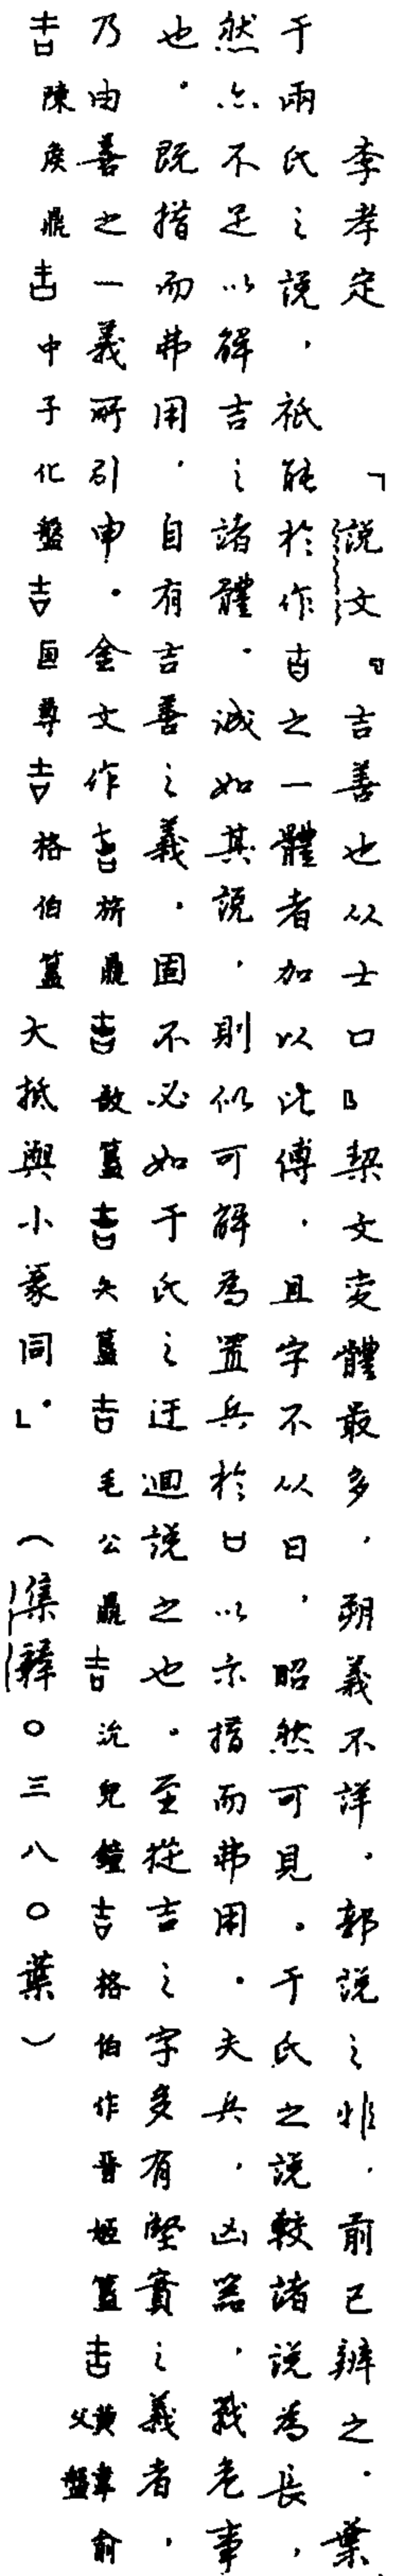 李孝定　「說文『吉善也从士口』契文变體最多，朔義不詳。郭說之非，前已辨之。葉
于兩氏之說，祇能於作𠮷之一體者加以比傅，且字不从日，昭然可見。于氏之說較諸說為長，
然亦不足以解吉之諸體。誠如其說，則似可解為置兵於凵以示措而弗用。夫兵，凶器，戰危事
也。既措而弗用，自有吉善之義。固不必如于氏之迂迴說之也。至從吉之字多有堅實之義者，
乃由善之一義所引申。金文作吉旂鼎吉㪤簋吉矢簋吉毛公鼎吉沇兒鐘吉格伯作晉姬簋吉黃韋俞父盤
吉陳矦鼎吉中子化盤吉尊吉格伯簋大抵與小篆同。」（集釋〇三八〇葉）